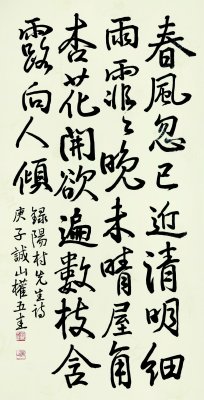 春風忽已近清明細
雨霏々晚未晴屋角
杏花開欲遍數枝含
露向人傾
錄陽村先生詩
庚子誠山權五圭